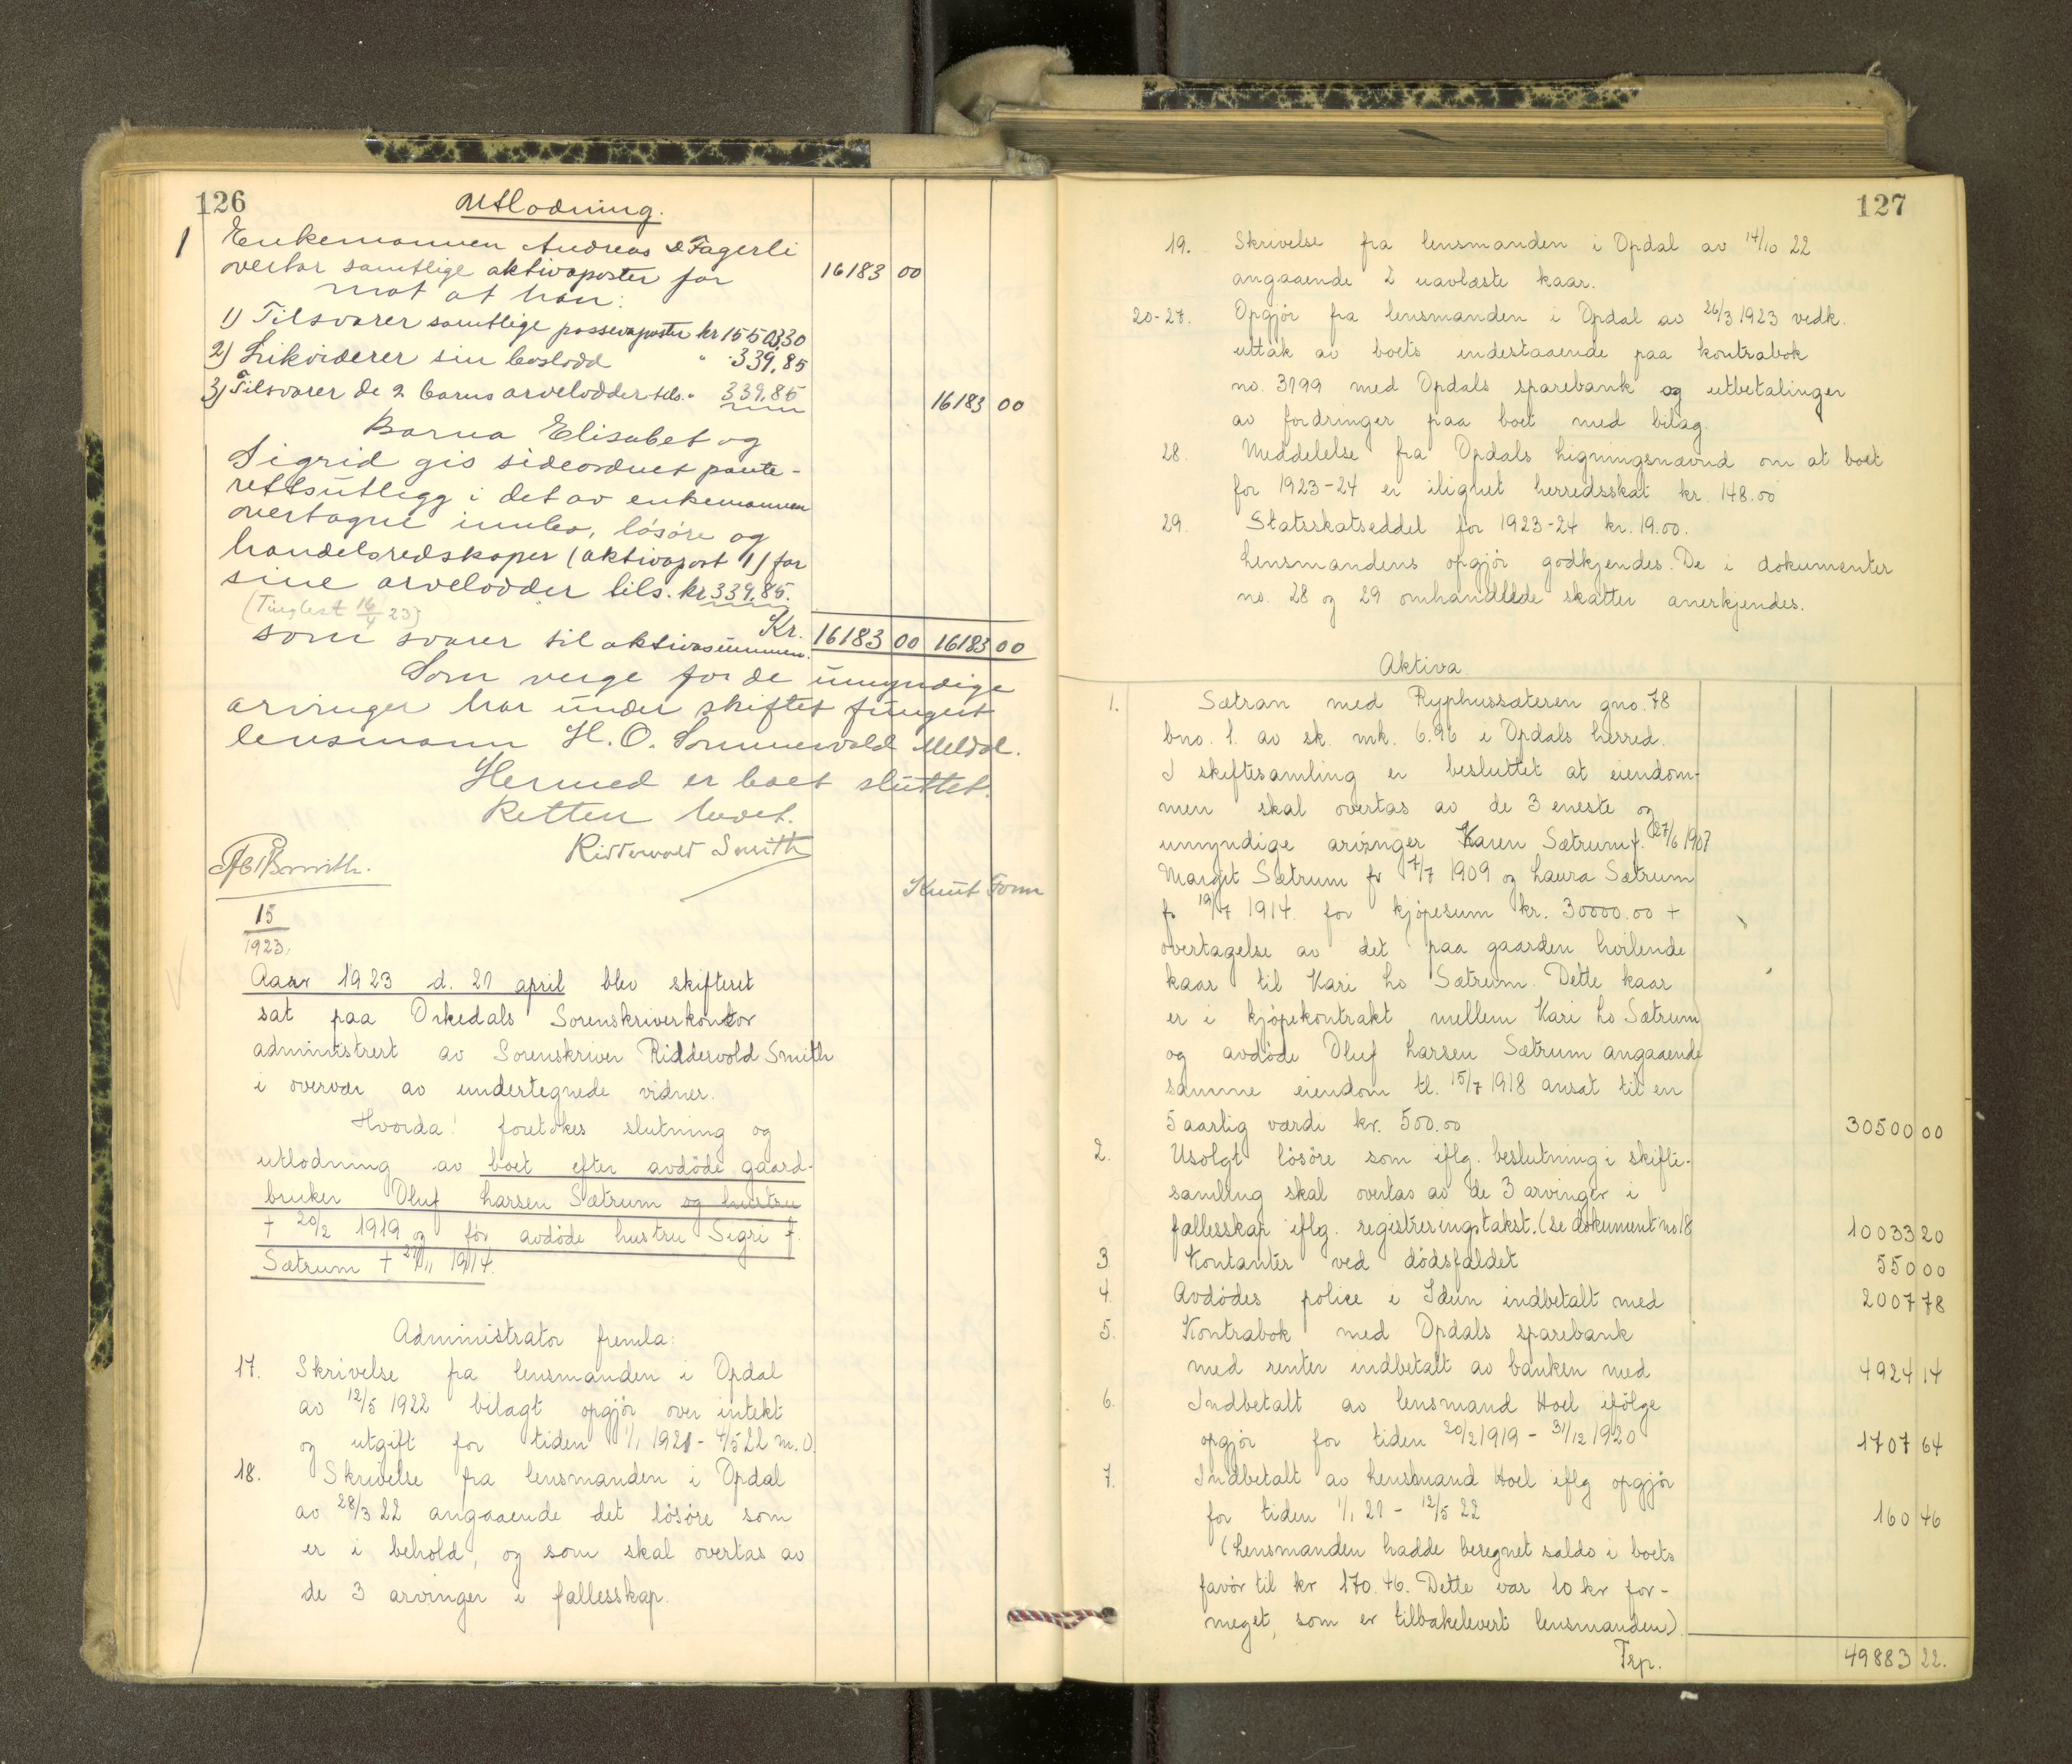 126
Utlodning.
1 Enkemannen Andreas O Fagerli
overtar samtlige aktivaposter for 16183 00
mot at han:
1) Tilsvarer samtlige passivaposter kr 15503,30
2) Likviderer sin boslodd " 339,85
3) Tilsvarer de 2 barns arvelodder tils. " 339,85 16183 00
Barna Elisabet og
Sigrid gis sideordnet pante-
rettsutlegg i det av enkemannen
overtagne innbo, løsøre og
handelsredskaper (aktivapost 1) for
sine arvelodder tils. kr 339,85.
(Tinglest 16/4 23)
Kr. 16183 00 16183 00
som svarer til aktivasummen.
Som verge for de umyndige
arvinger har under skiftet fungert
lensmann H. O. Sommervold Meldal.
Hermed er boet sluttet.
Retten hevet.
Ridderwold Smith
Knut Tonn
15
1923.
Aar 1923 d. 21 april blev skifteret
sat paa Orkedals Sorenskriverkontor
administrert av Sorenskriver Ridderwold Smith
i overvær av undertegnede vidner.
Hvorda! foretokes slutning og
utlodning av boet efter avdöde gaard-
bruker Oluf Larsen Sætrum og hustru
+ 20/2 1919 og för avdöde hustru Sigri f.
Sætrum + 27/11 1914.
Administrator fremla:
17. Skrivelse fra lensmanden i Opdal
av 12/5 1922 bilagt opgjör over intekt
og utgift for tiden 1/1 1921 - 4/5 22 m. O.
18. Skrivelse fra lensmanden i Opdal
av 28/3 22 angaaende det lösöre som
er i behold, og som skal overtas av
de 3 arvinger i fællesskap.
127
19. Skrivelse fra lensmanden i Opdal av 14/10 22
angaaende 2 uavlæste kaar.
20-27. Opgjör fra lensmanden i Opdal av 26/3 1923 vedk.
uttak av boets indestaaende paa kontrabok
no. 3799 med Opdals sparebank og utbetalinger
av fordringer paa boet med bilag.
28. Meddelelse fra Opdals ligningsnævnd om at boet
for 1923-24 er ilignet herredsskat kr. 148.00
29. Statsskatseddel for 1923-24 kr. 19.00.
Lensmandens opgjör godkjendes. De i dokumenter
no. 28 og 29 omhandlede skatter anerkjendes.
Aktiva
1. Sætran med Ryphussæteren gno. 78
bno. 1. av sk. mk. 6.96 i Opdals herred.
I skiftesamling er besluttet at eiendom-
men skal overtas av de 3 eneste og
umyndige arvinger Karen Sætrum f. 27/6 1907
Margit Sætrum f. 7/7 1909 og Laura Sætrum
f. 19/7 1914. for kjöpesum kr. 30000.00 +
overtagelse av det paa gaarden hvilende
kaar til Kari Lo Sætrum. Dette kaar
er i kjöpekontrakt mellem Kari Lo Sætrum
og avdöde Oluf Larsen Sætrum angaaende
samme eiendom tl. 15/7 1918 ansat til en
5 aarlig værdi kr. 500.00 30500 00
2. Usolgt lösöre som iflg. beslutning i skifte-
samling skal overtas av de 3 arvinger i
fællesskap iflg. registreringstakst. (se dokument no 18 10033 20
3. Kontanter ved dödsfaldet 550 00
4. Avdödes police i Idun indbetalt med 2007 78
5. Kontrabok med Opdals sparebank
med renter indbetalt av banken med 4924 14
6. Indbetalt av lensmand Hoel ifölge
opgjör for tiden 20/2 1919 - 31/12 1920 1707 64
7. Indbetalt av Lensmand Hoel iflg opgjör
for tiden 1/1 21 - 12/5 22 160 46
(Lensmanden hadde beregnet saldo i boets
favör til kr 170.46. Dette var 10 kr for-
meget, som er tilbakelevert lensmanden).
Frp. 49883 22.